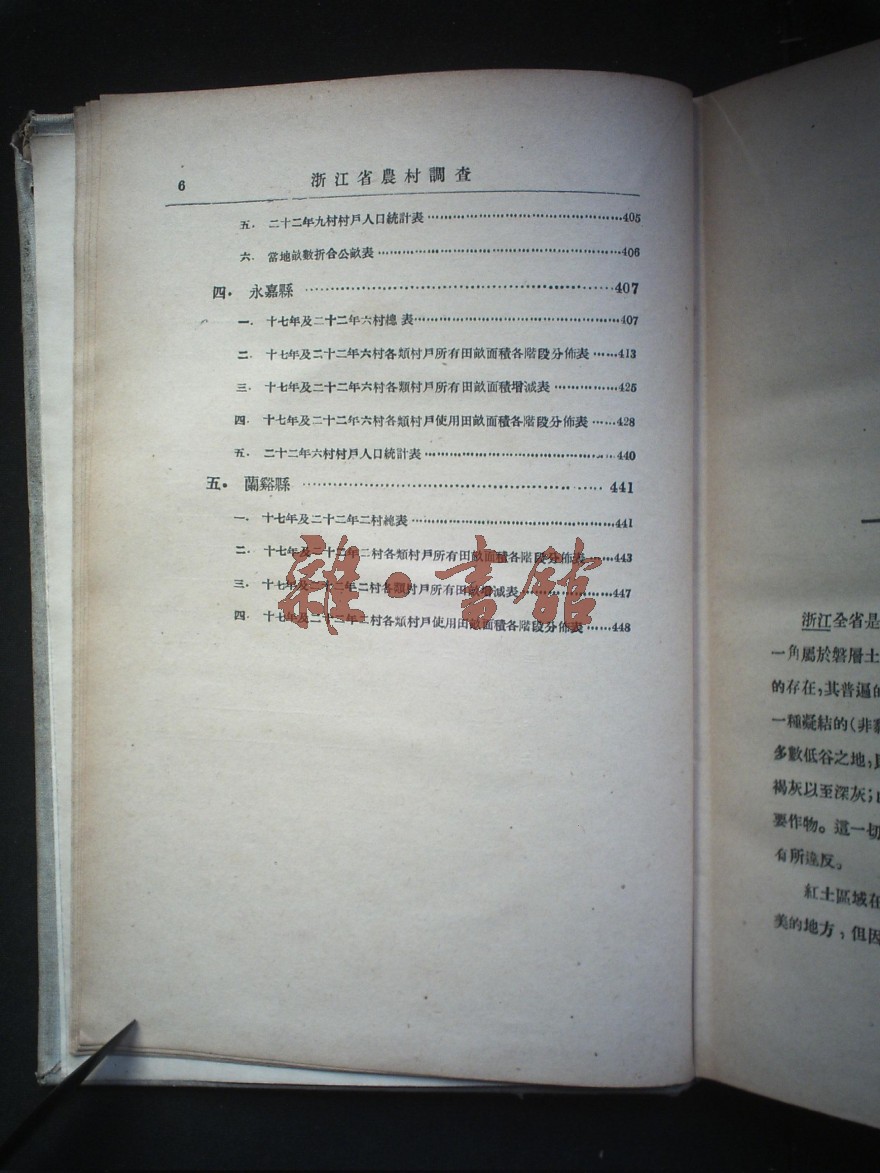 6 浙江省農村調查
五. 二十二年九村村戶人口統計表……405
六. 當地畝數折合公畝表……406
四. 永嘉縣……407
一. 十七年及二十二年六村總表……407
二. 十七年及二十二年六村各類村戶所有田畝面積各階段分佈表……413
三. 十七年及二十二年六村各類村戶所有田畝面積增減表……425
四. 十七年及二十二年六村各類村戶使用田畝面積各階段分佈表……428
五. 二十二年六村村戶人口統計表……440
五. 蘭谿縣……441
一. 十七年及二十二年二村總表……441
二. 十七年及二十二年二村各類村戶所有田畝面積各階段分佈表……443
三. 十七年及二十二年二村各類村戶所有田畝增減表……447
四. 十七年及二十二年二村各類村戶使用田畝面積各階段分佈表……448
雜·書館
浙江全省是
一角屬於磐層土
的存在,其普遍的
一種凝結的(非
多數低谷之地,
褐灰以至深灰;
要作物。這一切
有所違反。
紅土區域在
美的地方,但因